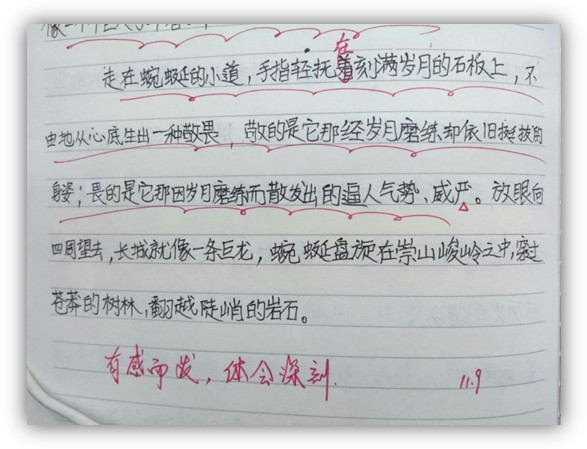 在
走在蜿蜒的小道，手指轻抚着刻满岁月的石板上，不
由地从心底生出一种敬畏，敬的是它那经岁月磨练却依旧挺拔的
身姿；畏的是它那因岁月磨练而散发出的逼人气势、威严。放眼向
四周望去，长城就像一条巨龙，蜿蜒盘旋在崇山峻岭之中，穿过
苍莽的树林，翻越陡峭的岩石。
有感而发，体会深刻.
11.9